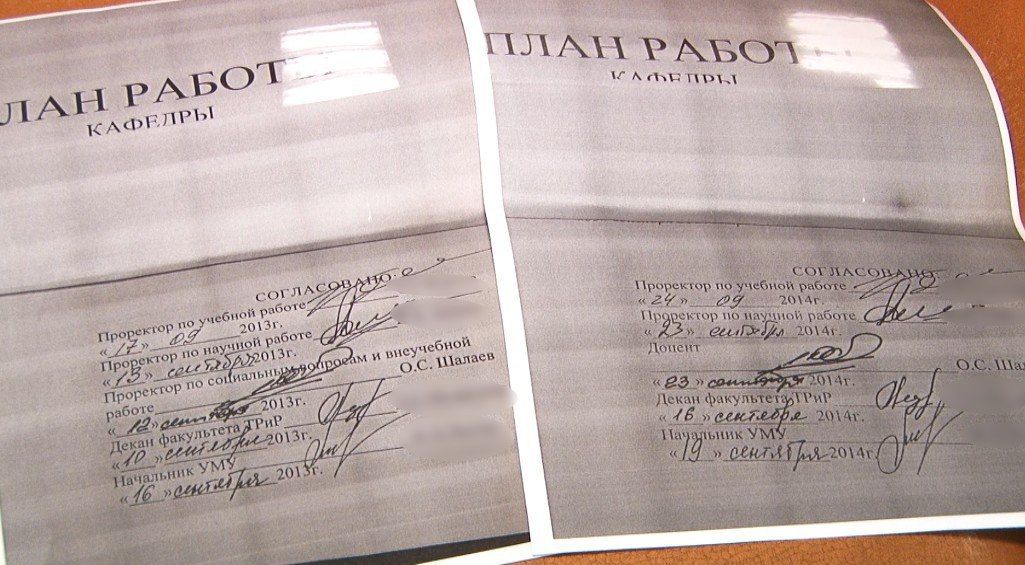 ПЛАН РАБОТ
КАФЕДРЫ
СОГЛАСОВАНО:
Проректор по учебной работе
«17» 09 2013г.
Проректор по научной работе
«13» сентября 2013г.
Проректор по социальным вопросам и внеучебной
работе О.С. Шалаев
«12» сентября 2013г.
Декан факультета ТРиР
«10» сентября 2013г.
Начальник УМУ
«16» сентября 2013г.
ПЛАН РАБОТ
КАФЕДРЫ
СОГЛАСОВАНО:
Проректор по учебной работе
«24» 09 2014г.
Проректор по научной работе
«23» сентября 2014г.
Доцент
О.С. Шал
«23» сентября 2014г.
Декан факультета ТРиР
«16» сентября 2014г.
Начальник УМУ
«19» сентября 2014г.